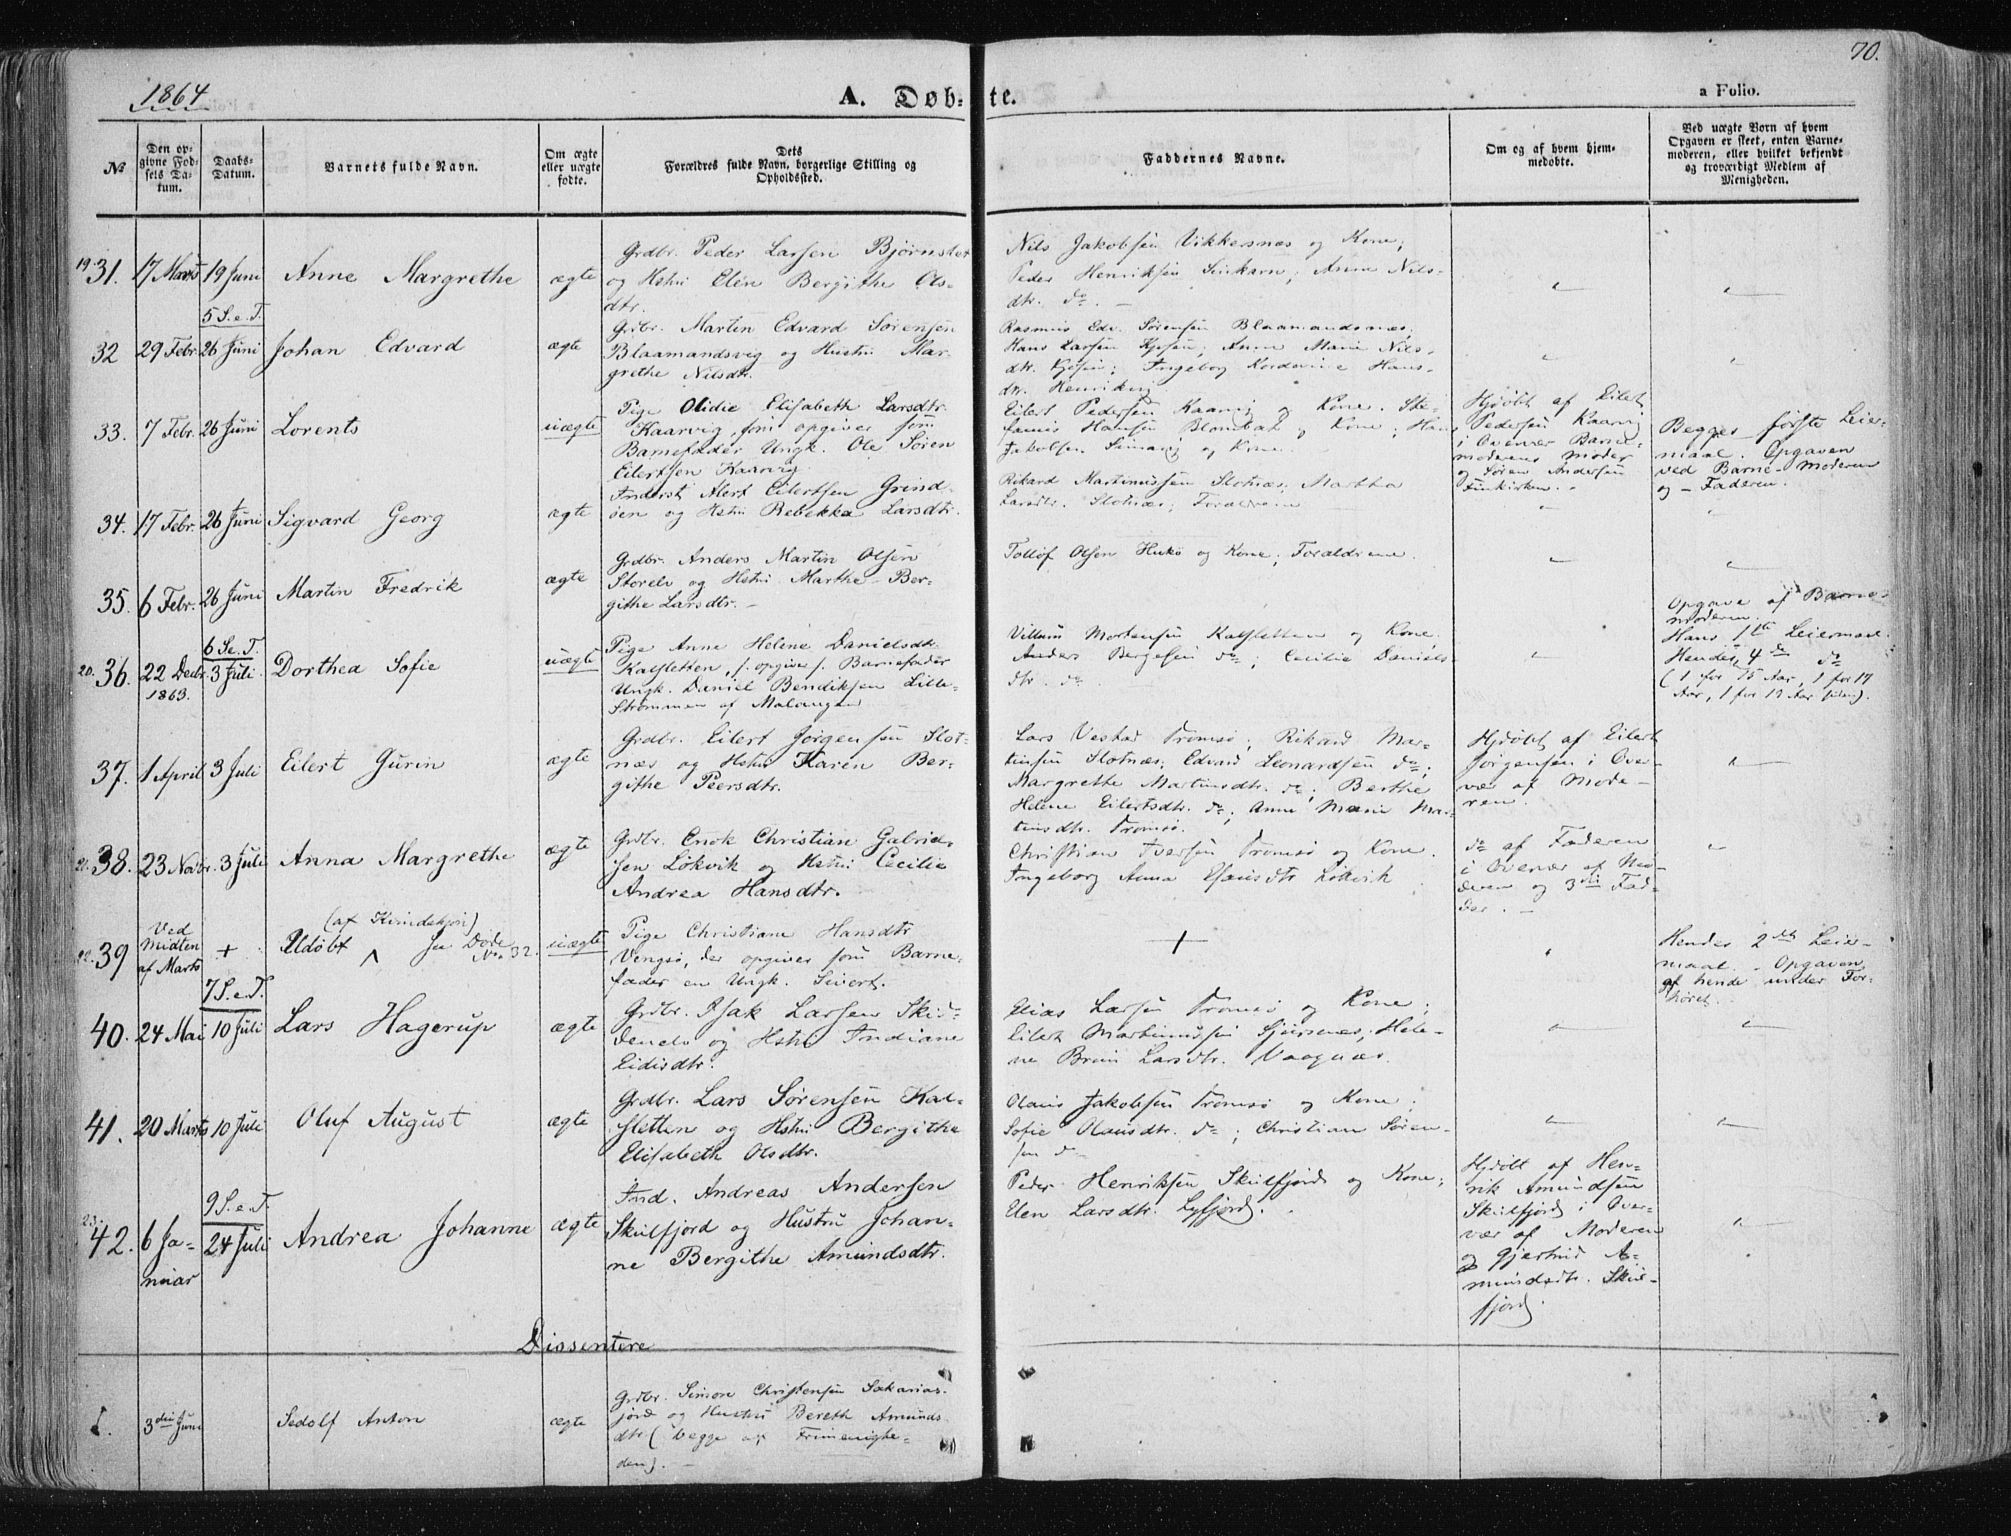 1864
A. Døb-te.
70.
a Folio.
№
Den opgivne Fodsels Datum.
Daabs-Datum.
Barnets fulde Navn.
Om ægte eller uægte fødte.
Dets Forældres fulde Navn, borgerlige Stilling og Opholdssted.
Faddernes Navne.
Om og af hvem hjemmedøbte.
Ved uægte Børn af hvem Opgaven er skeet, enten Barnemoderen, eller hvilket bekjendt og troværdigt Medlem af Menigheden.
19. 31. 17 Marts 19 Juni Anne Margrethe ægte
Grdbr. Peder Larsen Bjørnskar
og Hstru Elen Bergithe Ols-
dtr.
Nils Jakobsen Vikkesnæs og Kone;
Peder Henriksen; Anna Nils-
dtr. do. -
5 S. e. T.
32 29 Febr. 26 Juni Johan Edvard ægte
Grdbr. Martin Edvard Sørensen
Blaamandsvig og Hustru Mar-
grethe Nilsdtr.
Rasmus Edv. Sørensen Blaamandsnæs;
Hans Larsen; Anne Marie Nils-
dtr.; Ingeborg Hans-
dtr. Henrikvig
33. 7 Febr. 26 Juni Lorents uægte
Pige Olidie Elisabeth Larsdtr.
Kaarvig, som opgiver som
Barnefader Ungk. Ole Søren
Eilertsen Kaarvig
Eilert Pedersen Kaarvig og Kone. Ste-
fanus Hansen og Kone; Hans
Jakobsen og Kone.
Hjdøbt af Eilert
Pedersen Kaarvig
i Overvær Barne-
moderens Moder
og Søren Andersen
Finkirken. -
Begges første Leier-
maal. Opgaven
ved Barne-Moderen
og - Faderen.
34. 17 Febr. 26 Juni Sigvard Georg ægte
Inderst Alert Eilertsen Grind-
øen og Hstru Rebekka Larsdtr.
Rikard Martinussen Slotnæs; Martha
Larsdtr. Slotnæs; Forældrene
35. 6 Febr. 26 Juni Martin Fredrik ægte
Grdbr. Anders Martin Olsen
Storelv og Hstru Marthe Ber-
githe Larsdtr. -
Tollöf Olsen og Kone; Forældrene.
6 S. e. T.
20. 36. 22 Decbr. 1863. 3 Juli Dorthea Sofie uægte
Pige Anne Helene Danielsdtr.
Kalsletten, /: opgiver /: Barnefader
Ungk. Daniel Bendiksen Lille-
strømmen af Malangen
Villum Mortensen Kalsletten og Kone.
Anders Bergesen do; Cecilie Daniels-
dtr. do
Opgave af Barne-
moderen.
Hans 1te Leiermaal.
Hendes 4de do
(1 for 15 Aar, 1 for 17
Aar, 1 for 13 Aar siden).
37. 1 April 3 Juli Eilert Gurin ægte
Grdbr. Eilert Jørgensen Slot-
nær og Hstru Karen Ber-
githe Peersdtr.
Lars Vestad Tromsø; Rikard Mar-
tinsen Slotnæs; Edvard Leonardsen do;
Margrethe Martinsdtr. do; Berthe
Helene Eilertsdtr. do; Anne Marie Mar-
tinsdtr. Tromsø.
Hjdøbt af Eilert
Jørgensen i Over-
vær af Mode-
ren.
21. 38. 23 Novbr. 3 Juli Anna Margrethe ægte
Grdbr. Enok Christian Gabriel-
sen Løkvik og Hstru Cecilie
Andrea Hansdtr.
Christian Iversen Tromsø og Kone.
Ingeborg Anna Hansdtr Løkvik
do af Faderen
i Overvær af Mo-
deren og 3die Fad-
der. -
22. 39 Ved Midten af Marts + Udøbt (af Kvindekjøn) Se Døde No. 32. uægte
Pige Christiane Hansdtr
Vengsø, der opgiver som Barne-
fader en Ungk. Sivert.
+
Hendes 2det Leier-
maal. Opgaven
af hende under For-
høret.
7 S. e. T.
40. 24 Mai 10 Juli Lars Hagerup ægte
Grdbr. Isak Larsen Skid-
denelv og Hstru Indiane
Eidisdtr.
Elias Larsen Tromsø og Kone;
Eilert Martinussen; Hele-
ne Bruu Larsdtr. Vaagnæs.
41. 20 Marts 10 Juli Oluf August ægte
Grdbr. Lars Sørensen Kal-
sletten og Hstru Bergithe
Elisabeth Olsdtr.
Olaus Jakobsen Tromsø og Kone;
Sofie Olausdtr. do; Christian Søren-
sen do
9 S. e. T.
23. 42. 6 Januar 24 Juli Andrea Johanne ægte
Ind. Andreas Andersen
Skulfjord og Hustru Johan-
ne Bergithe Amundsdtr.
Peder Henriksen Skulfjord og Kone;
Elen Larsdtr. Lyfjord.
Hjdøbt af Hen-
rik Amundsen
Skulfjord i Over-
vær af Moderen
og Gjertrud A-
mundsdtr. Skul-
fjord.
Dissentere
1. 3die Juni Sedolf Anton ægte
Grdbr. Simon Christensen Sakarias-
jord og Hustru Bereth Amunds-
dtr (begge af Frimenighe-
den). -